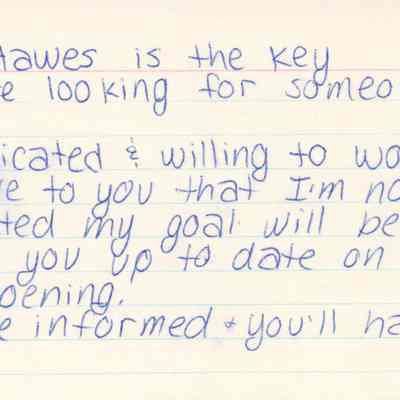 Hawes is the key
e looking for someo
icated & willing to wo
ve to you that I'm no
ted my goal will be
you up to date on
pening.
e informed & you'll ha